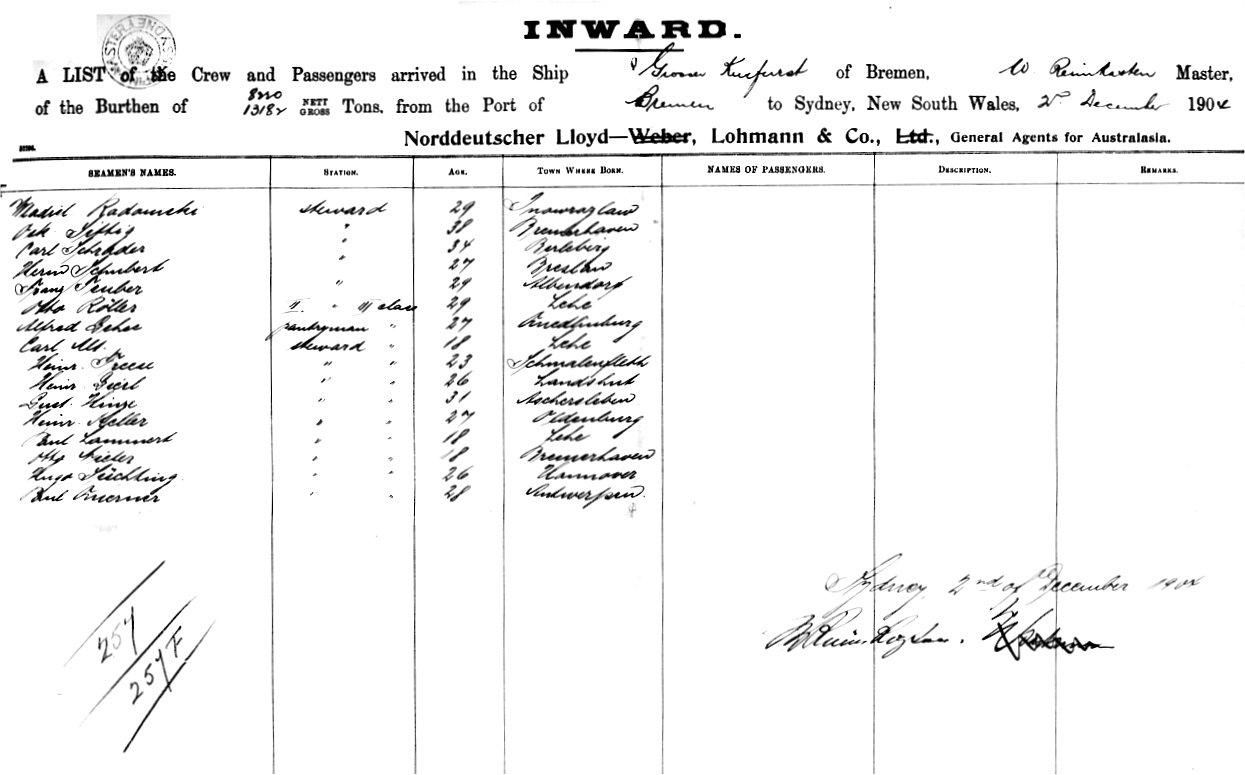 INWARD.
A LIST of the Crew and Passengers arrived in the Ship Grosser Kurfurst of Bremen, W Reimkasten Master,
of the Burthen of 8220 13182 NETT GROSS Tons, from the Port of Bremen to Sydney, New South Wales, 2nd December 1904
Norddeutscher Lloyd—Weber, Lohmann & Co., Ltd., General Agents for Australasia.
SEAMEN'S NAMES. STATION. AGE. TOWN WHERE BORN. NAMES OF PASSENGERS. DESCRIPTION. REMARKS.
Radomski steward 29 Inowrazlaw
Osk " 38 Bremerhaven
Carl Schrader " 34 Berleberg
Herm Schubert " 27 Breslau
Franz Teuber " 29 Albendorf
Otto Röller II. " III class 29 Lehe
Alfred pantryman " 27 Quedlinburg
Carl Alt. steward " 18 Lehe
Heinr. Freese " " 23 Schmalenfleth
Heinr. " " 26 Landshut
Gust. Hinze " " 31 Aschersleben
Heinr. Keller " " 27 Oldenburg
Paul Lammert " " 18 Lehe
Otto " " 18 Bremerhaven
Hugo " " 26 Hannover
Paul Querner " " 28 Antwerpen.
Sydney, 2nd of December 1904
257
257 F